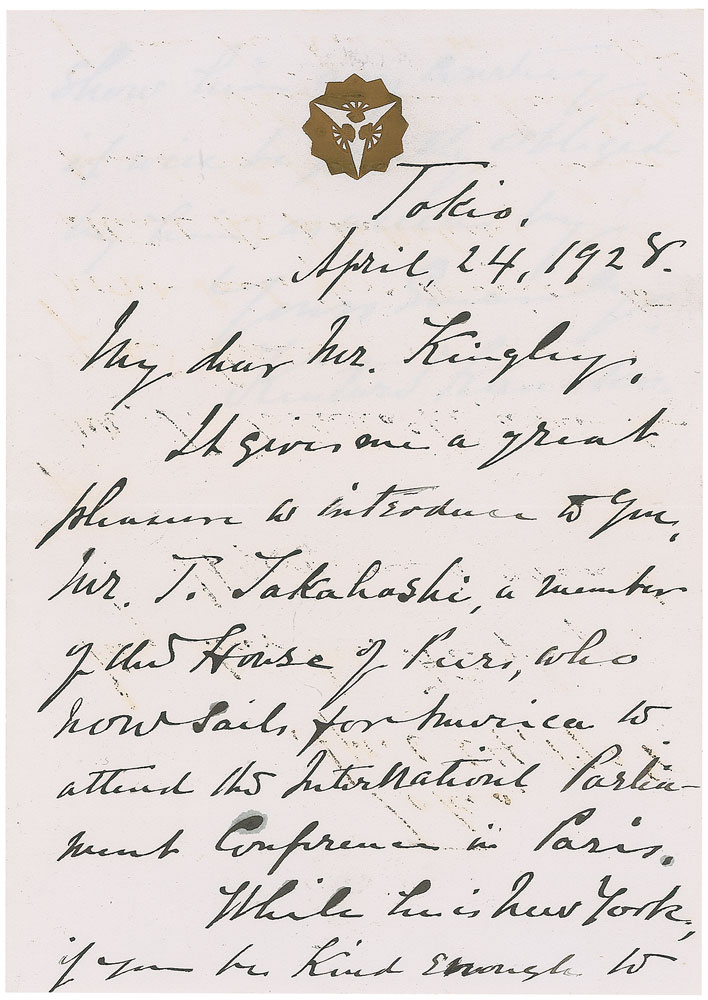 Tokio,
April, 24, 1928.
My dear Mr. Kingley,
It gives me a great
pleasure to introduce to you,
Mr. T. Takahashi, a member
of the House of Peers, who
now sails for America to
attend the Internationl Parlia-
ment Conference in Paris.
While he is New York,
if you be kind enough to